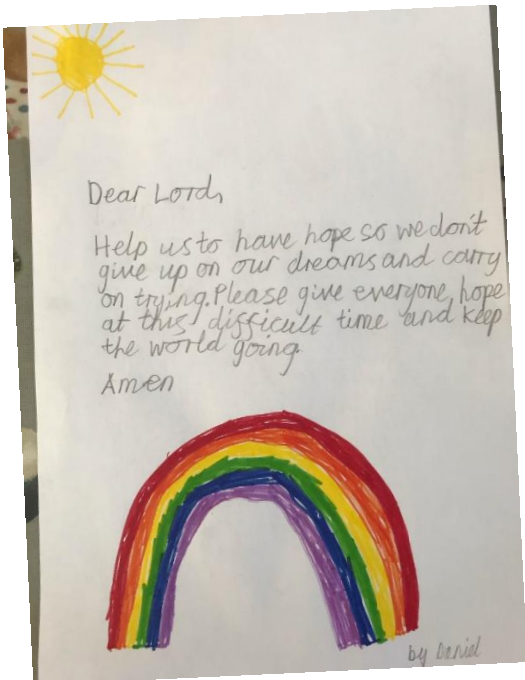 Dear Lord,
Help us to have hope so we don't
give up on our dreams and carry
on trying. Please give everyone, hope
at this difficult time and keep
the world going.
Amen
by Daniel